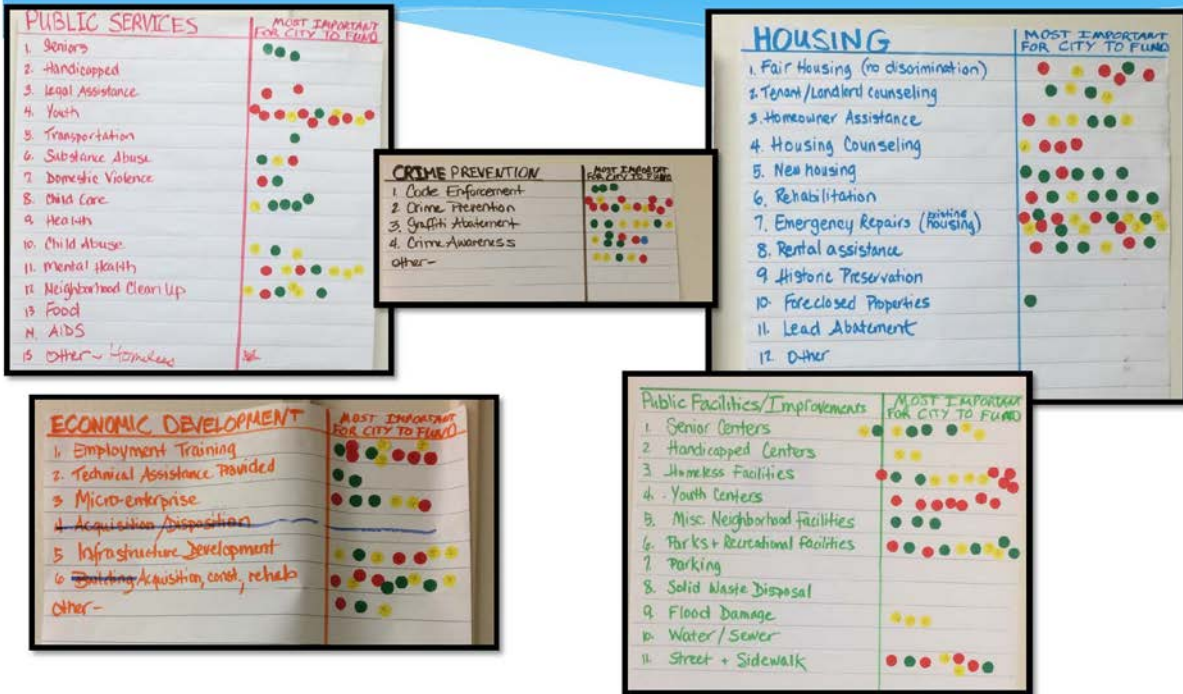 PUBLIC SERVICES
MOST IMPORTANT
FOR CITY TO FUND
1. Seniors
2. Handicapped
3. Legal Assistance
4. Youth
5. Transportation
6. Substance Abuse
7. Domestic Violence
8. Child Care
9. Health
10. Child Abuse
11. Mental Health
12 Neighborhood Clean Up
13 Food
14. AIDS
15 Other - Homeless
CRIME PREVENTION
MOST IMPORTANT
FOR CITY TO FUND
1. Code Enforcement
2. Crime Prevention
3. Graffiti Abatement
4. Crime Awareness
other-
HOUSING
MOST IMPORTANT
FOR CITY TO FUND
1. Fair Housing (no discrimination)
2. Tenant/Landlord counseling
3. Homeowner Assistance
4. Housing Counseling
5. New housing
6. Rehabilitation
7. Emergency Repairs (existing housing)
8. Rental assistance
9 Historic Preservation
10. Foreclosed Properties
11. Lead Abatement
12 Other
ECONOMIC DEVELOPMENT
MOST IMPORTANT
FOR CITY TO FUND
1. Employment Training
2. Technical Assistance Provided
3 Micro-enterprise
4 Acquisition/Disposition
5 Infrastructure Development
6 Building Acquisition, const, rehab
other-
Public Facilities/Improvements
MOST IMPORTANT
FOR CITY TO FUND
1. Senior Centers
2 Handicapped Centers
3. Homeless Facilities
4. Youth Centers
5. Misc Neighborhood Facilities
6. Parks + Recreational Facilities
7. Parking
8. Solid Waste Disposal
9. Flood Damage
10. Water/Sewer
11. Street + Sidewalk